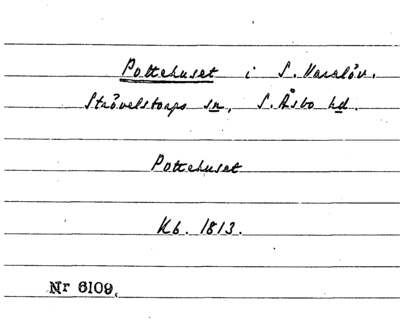 Pottehuset i S. Varalöv.
Strövelstorps sn, S. Åsbo hd.
Pottehuset
Kb. 1813.
Nr 6109.